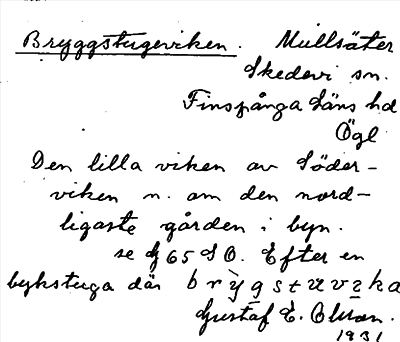 Bryggstugeviken. Mullsäter
Skedevi sn.
Finspånga läns hd
Ögl
Den lilla viken av Söder-
viken n. om den nord-
ligaste gården i byn.
se G 65 SO. Efter en
bykstuga där
Gustaf E. Olsson.
1931